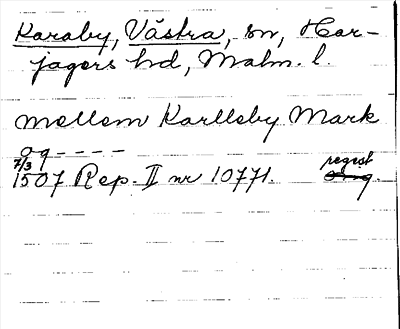 Karaby, Västra, sn, Har-
jagers hd, Malm. l.
mellem Karlleby Mark
og - - - -
7/3
1507 Rep. II nr 10771. regest